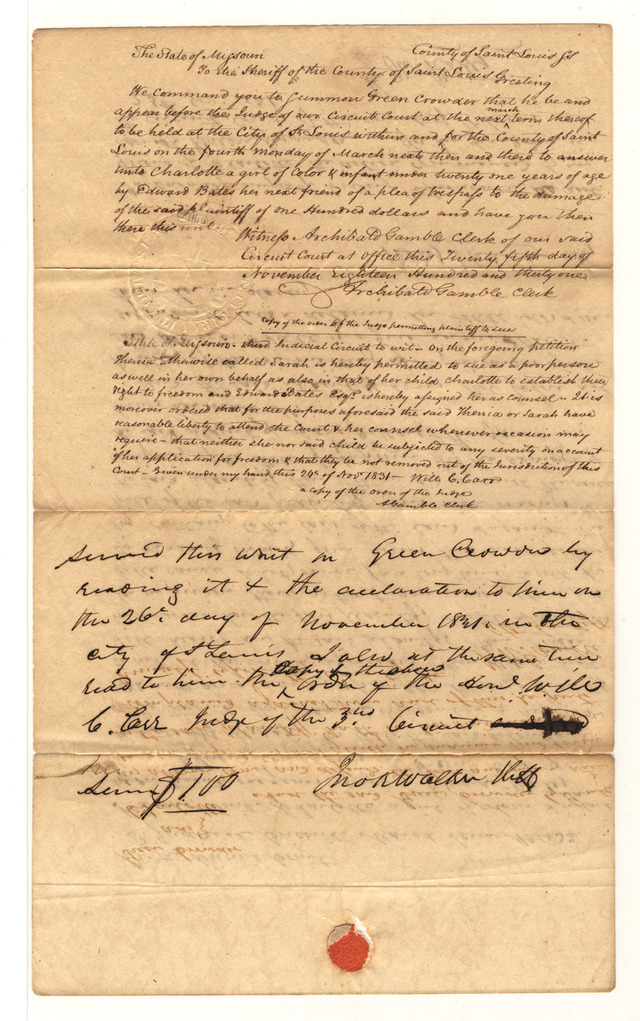 The State of Missouri County of Saint Louis Ss
To the Sheriff of the County of Saint Louis Greeting
We command you to Summon Green Crowder that he be and
appear before the Judge of our Circuit Court at the next march term thereof
to be held at the City of St Louis within and for the County of Saint
Louis on the fourth monday of March next then and there to answer
unto Charlotte a girl of Color & infant under twenty one years of age
by Edward Bates her next friend of a plea of trespass to the damage
of the said plaintiff of one Hundred dollars and have you then
there this writ
Witness Archibald Gamble Clerk of our said
Circuit Court at office this Twenty fifth day of
November Eighteen Hundred and thirty one
Archibald Gamble Clerk
Copy of the order of the Judge permitting plaintiff to sue
State of Missouri - third Judicial Circuit to wit - On the foregoing petition
Thenia otherwise called Sarah is hereby permitted to sue as a poor person
as well in her own behalf as also in that of her child, Charlotte to establish their
right to freedom and Edward Bates Esqr is hereby assigned her as counsel - It is
moreover ordered that for the purposes aforesaid the said Thenia or Sarah have
reasonable liberty to attend the Court & her counsel whenever occasion may
require - that neither she nor said child be subjected to any severity on account
of her application for freedom & that they be not removed out of the Jurisdiction of this
Court - Given under my hand this 24th of Novr 1831 - Will: C. Carr
a copy of the order of the Judge
A Gamble Clerk
Served this writ on Green Crowder by
reading it & the declaration to him on
the 26th day of November 1831. in the
city of St Louis I also at the same time
read to him the Copy of the above order of the Honl. Will
C. Carr Judge of the 3rd Circuit
Serv $1.00 Walker Shff